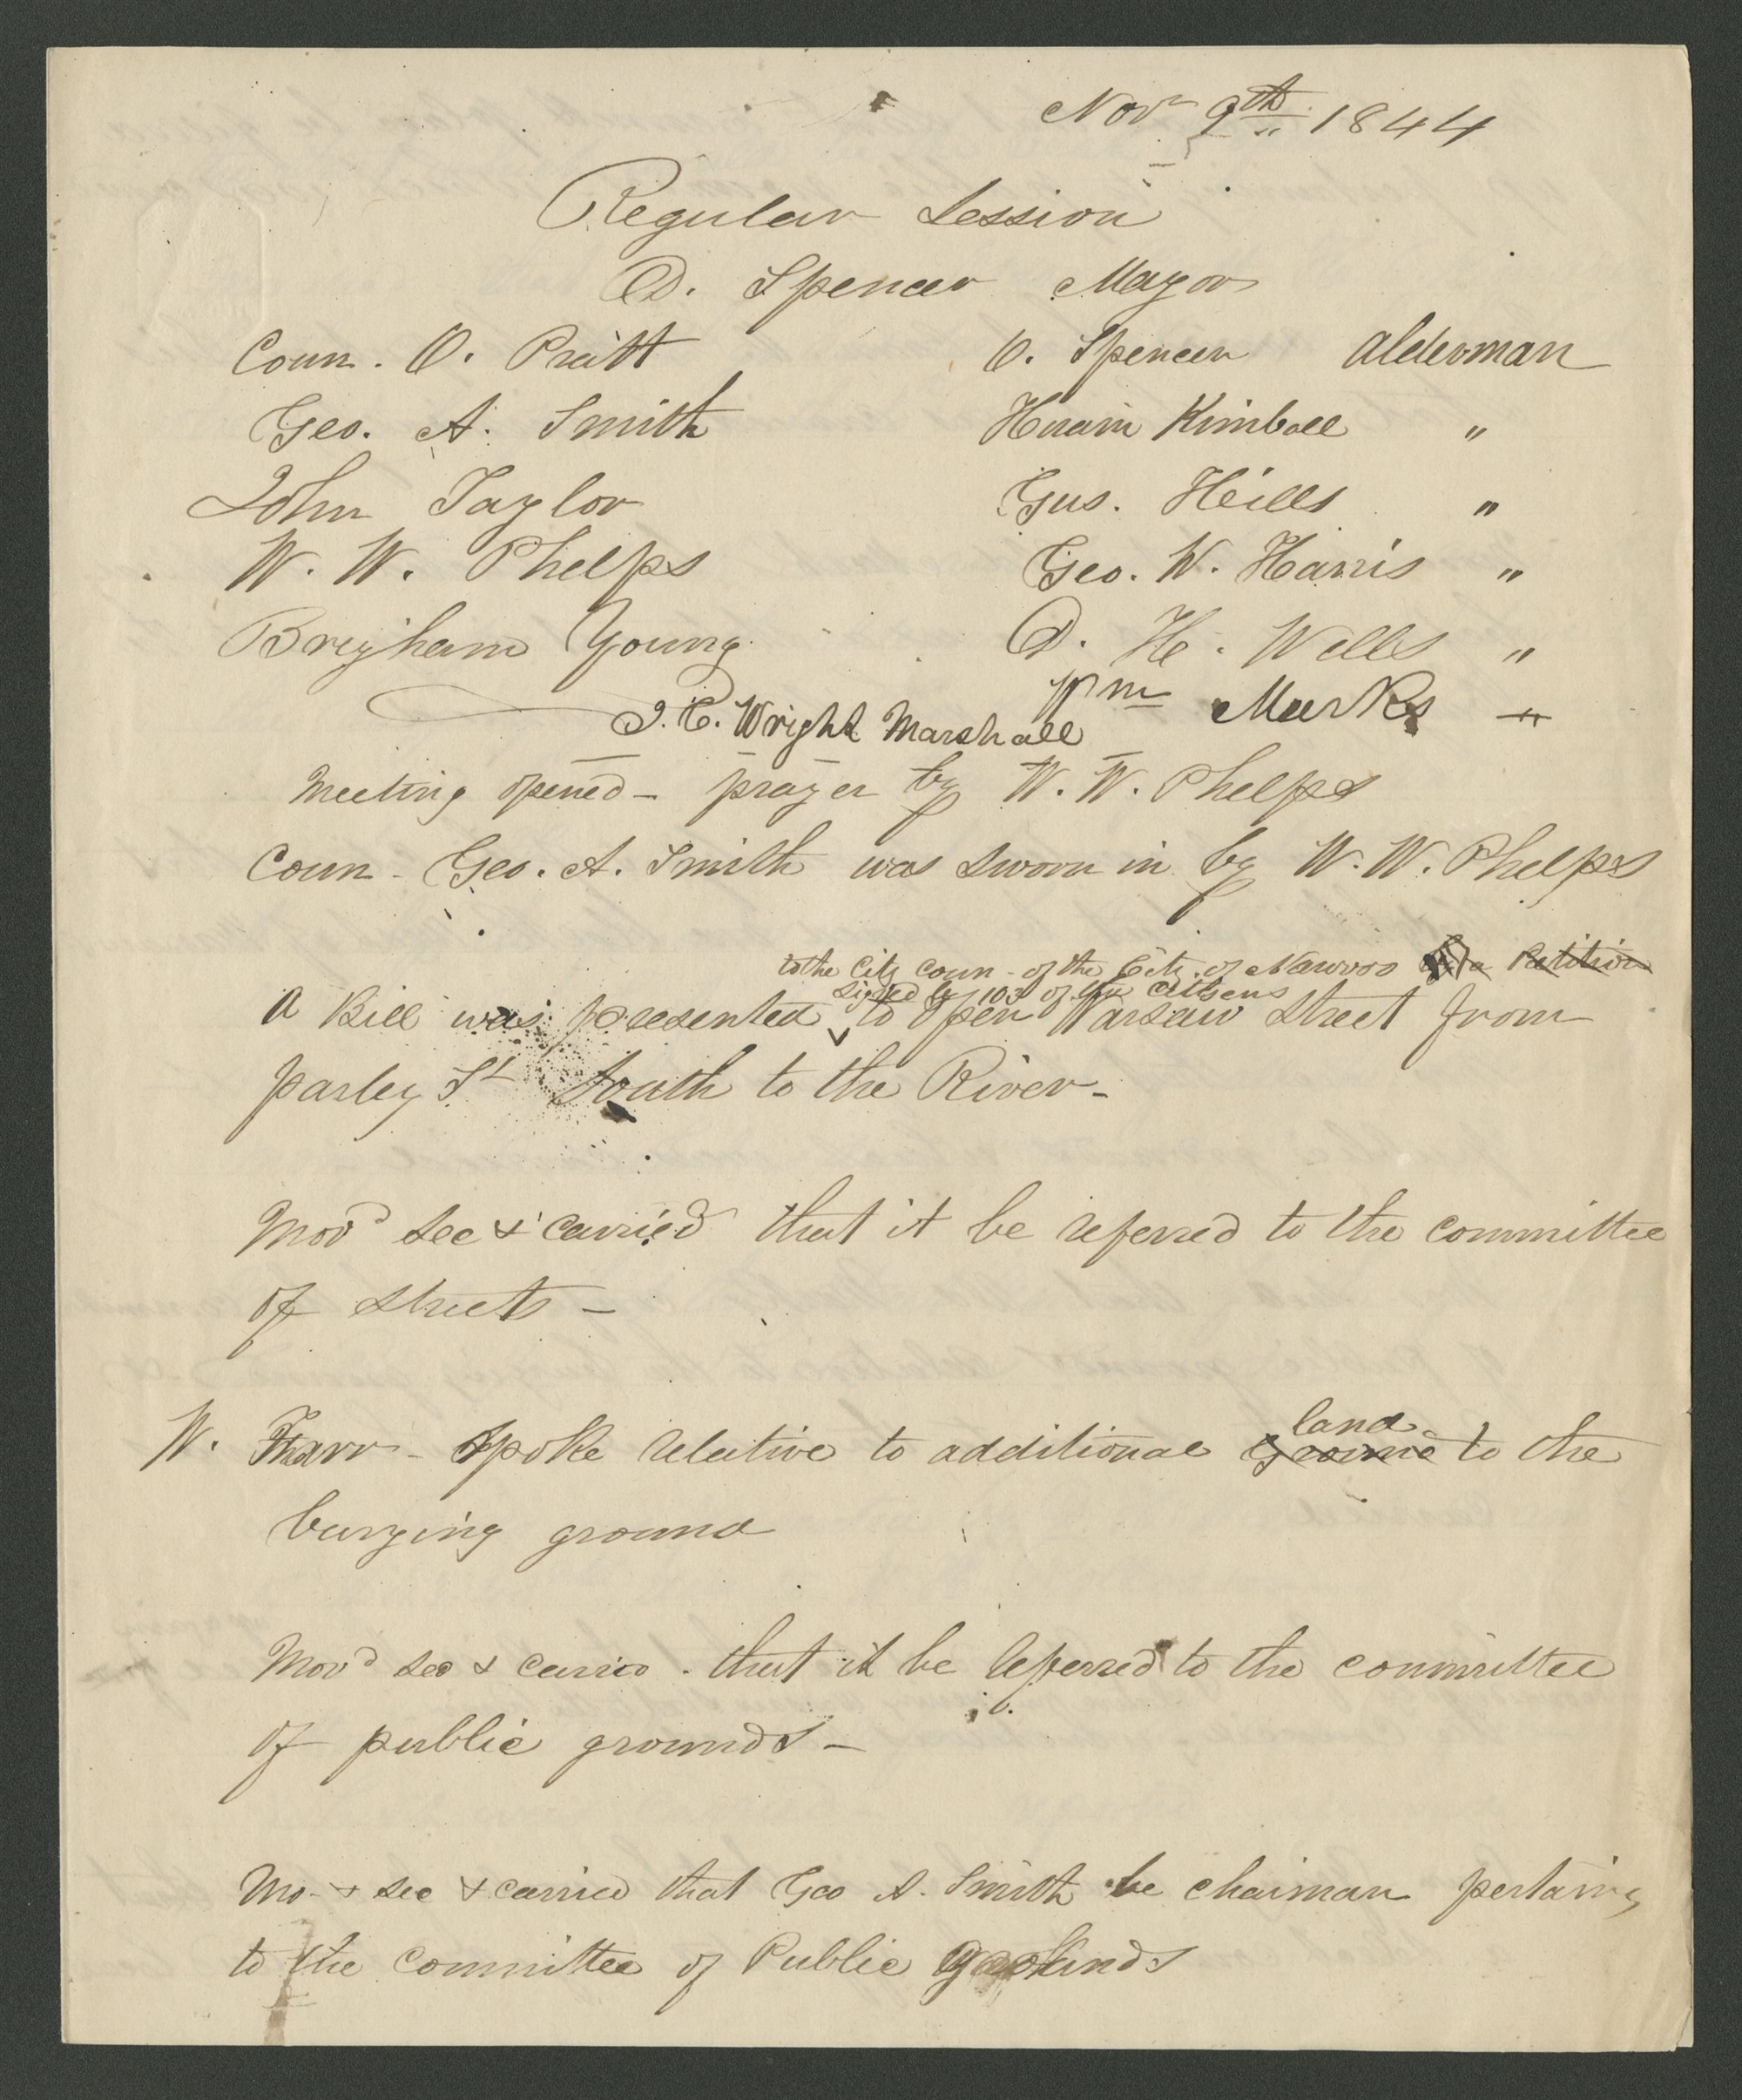 Novr 9th 1844
Regular Session
D. Spencer Mayor
Coun. O. Pratt O. Spencer Alderman
Geo. A. Smith Hiram Kimball "
John Taylor Gus. Hills "
W. W. Phelps Geo. W. Harris "
Brigham Young D. H. Wells "
Wm Marks "
J. C. Wright Marshall
Meeting opened - prayer by W. W. Phelps
Coun - Geo. A. Smith was sworn in by W. W. Phelps
to the City Coun - of the City of Nauvoo a Petition
signed by 103 of the Citisens
A Bill was presented to open Warsaw Street from
parley St South to the River -
Movd sec & carried that it be referred to the committee
of streets -
land
W. Farr - Spoke relative to additional Ground to the
burying ground
Movd sec & carried . that it be referred to the committee
of public grounds -
Mo - & sec & carried that Geo A. Smith be chaiman pertaining
to the committee of Public grounds